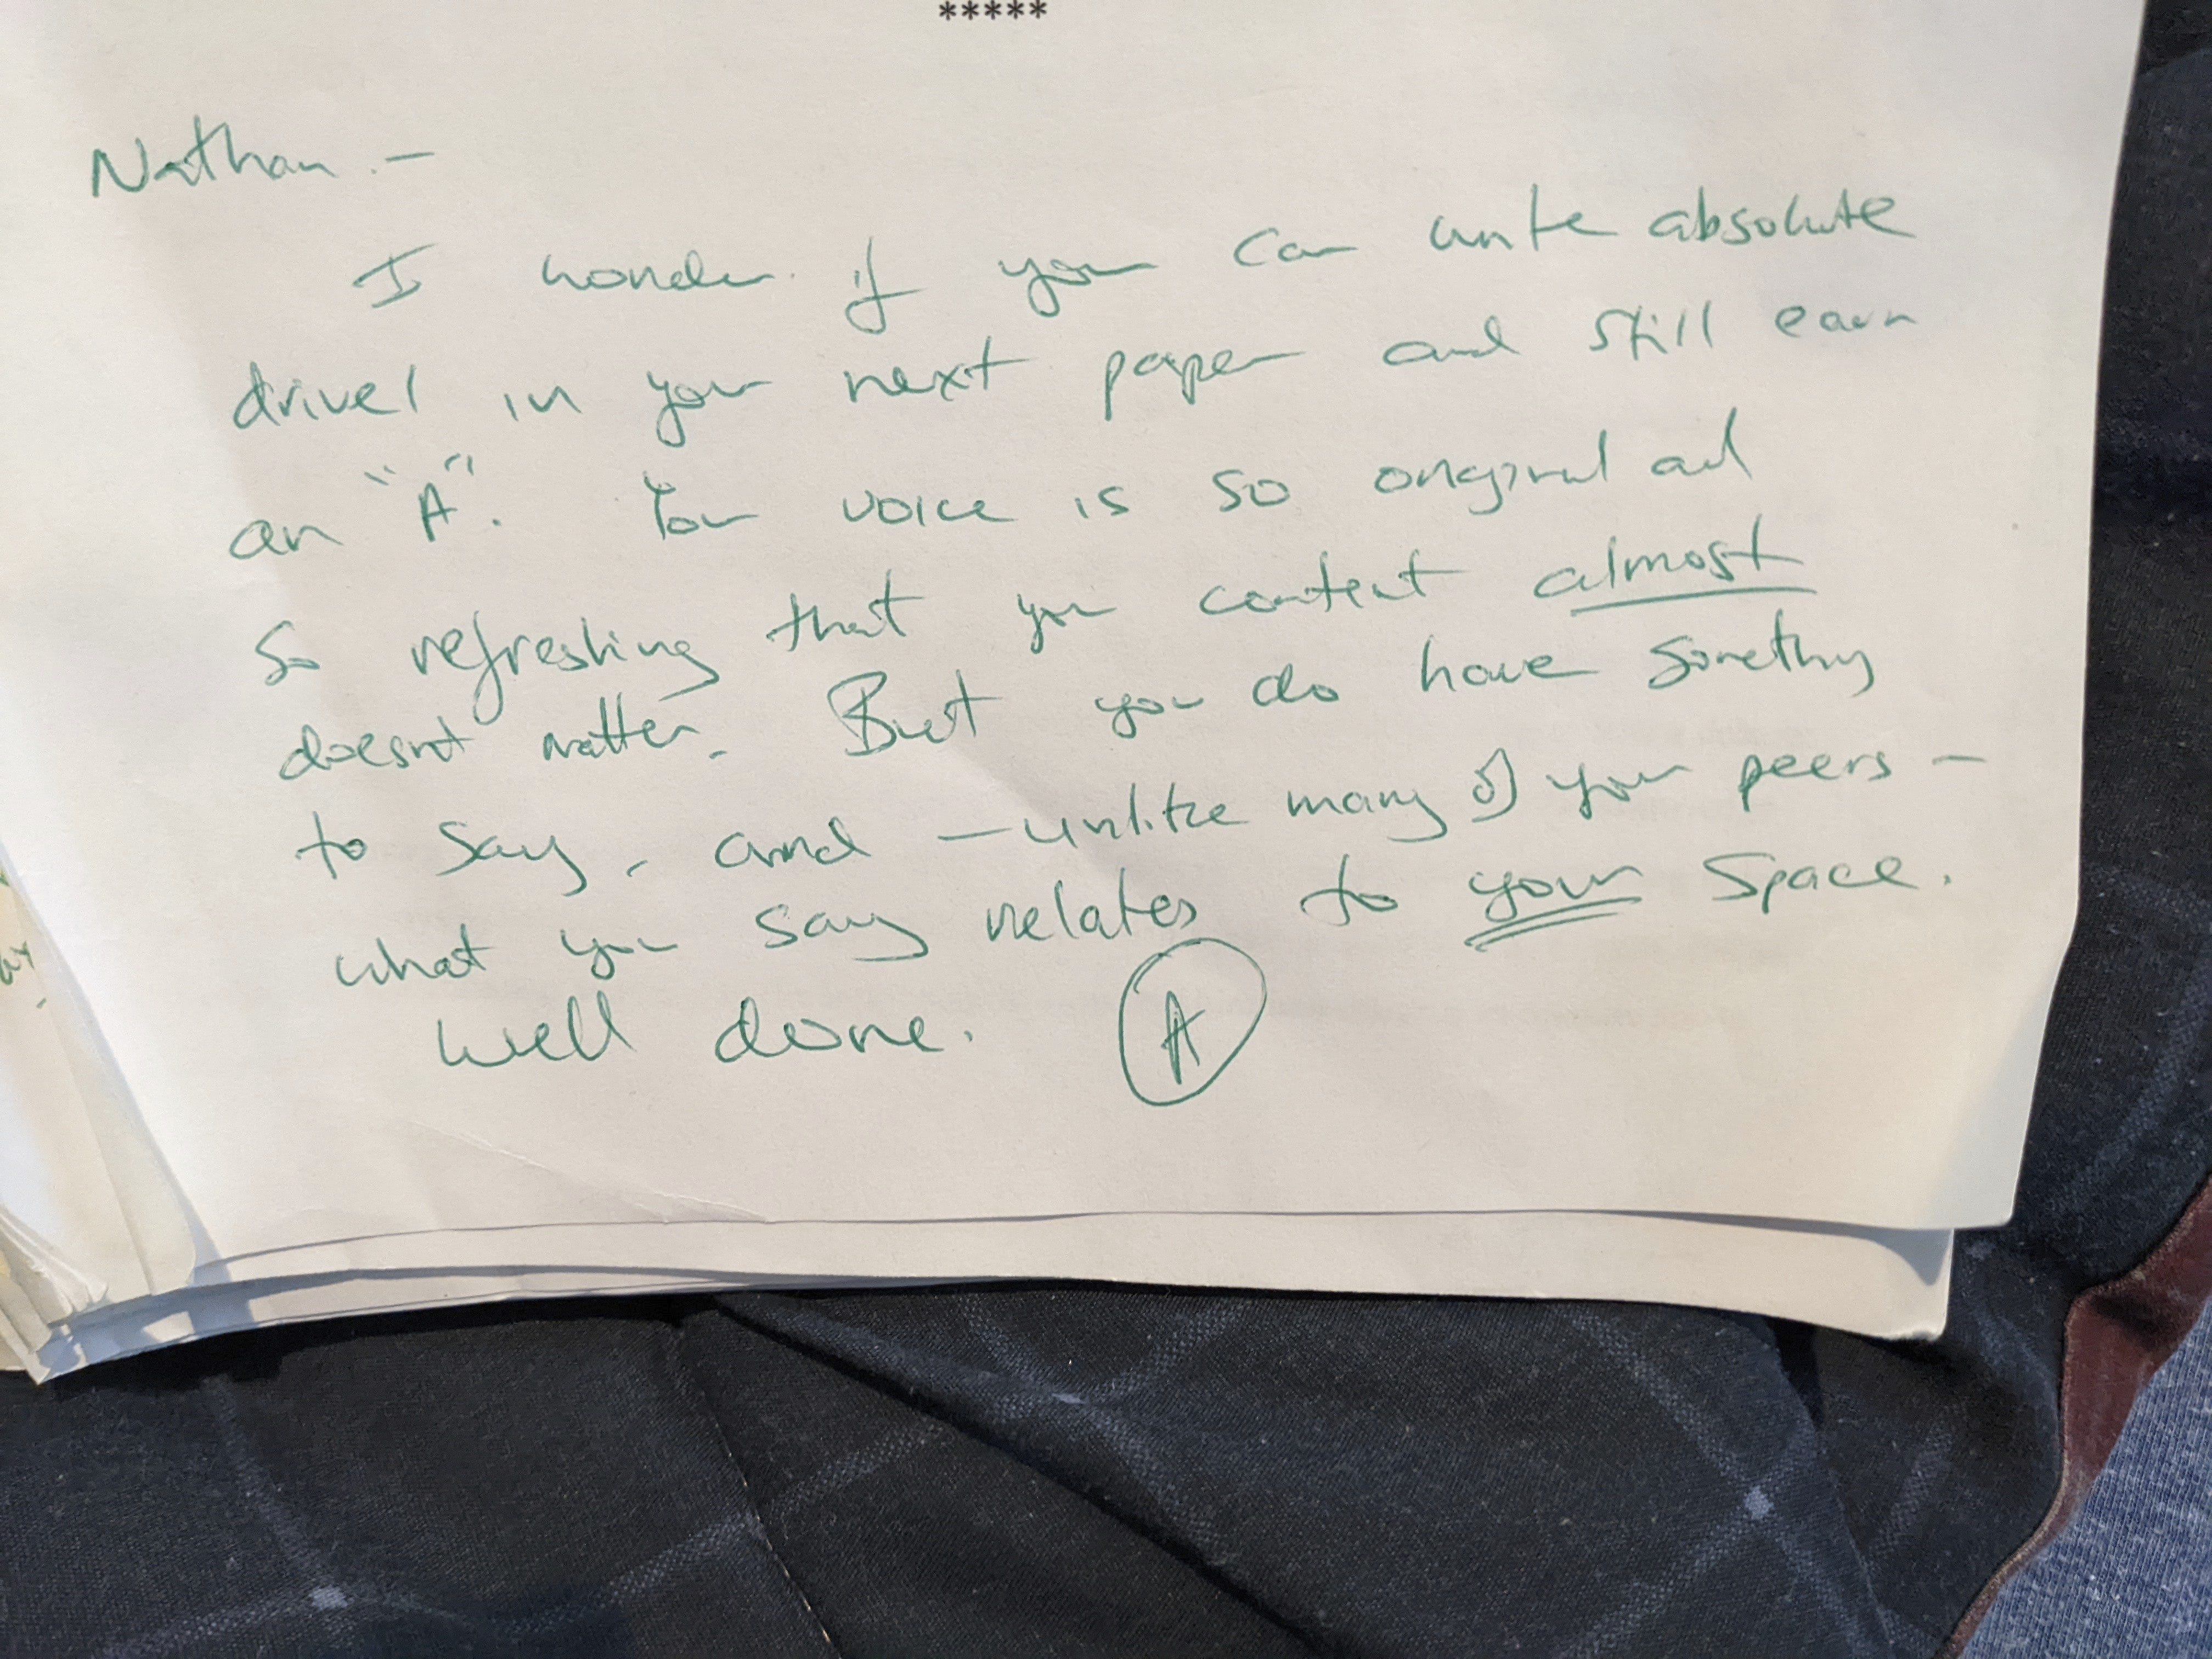 *****
Nathan -
I wonder if you can write absolute
drivel in your next paper and still earn
an "A". Your voice is so original and
so refreshing that your content almost
doesn't matter. But you do have something
to say, and - unlike many of your peers -
what you say relates to your space.
Well done. A